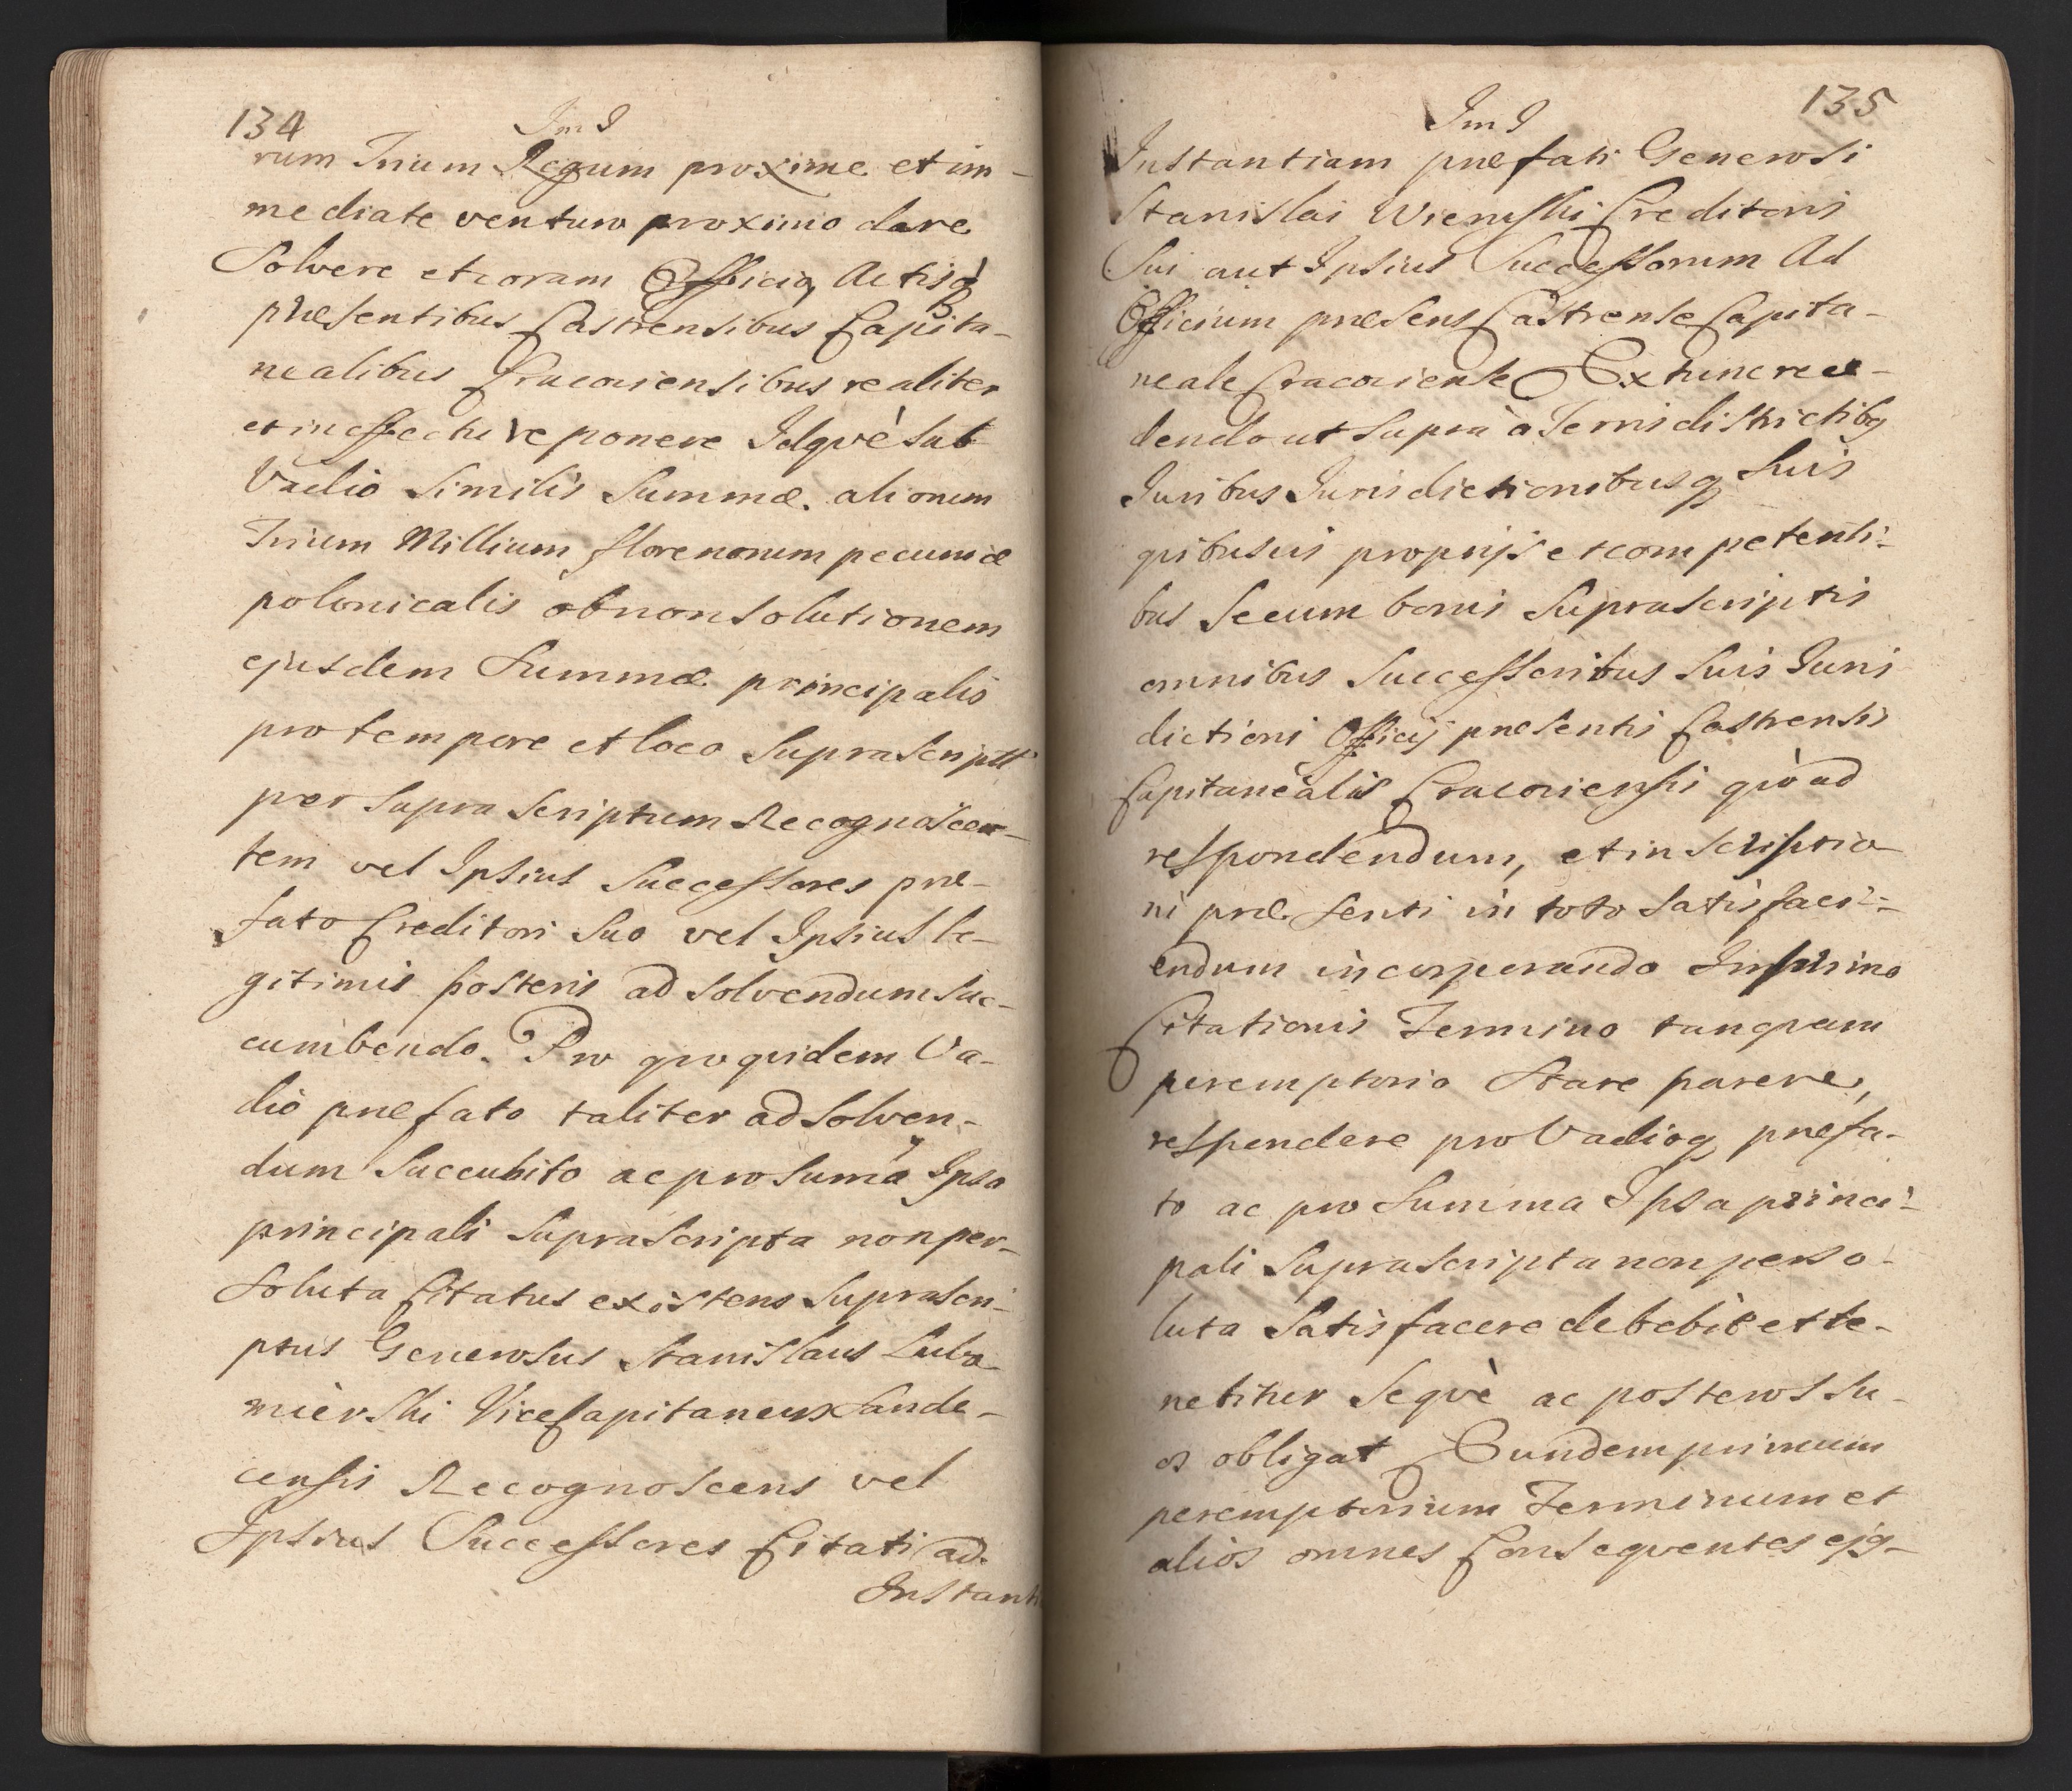 134
Im I
rum Trium Regum proxime et im-
mediate venturo proximo dare
Solvere et coram Officio Actisq
præsentibus Castrensibus Capita-
nealibus Cracoviensibus realiter
et in effectu reponere Idqvè Sub
Vadio Similis Summæ. aliorum
Trium Millium florenorum pecuniæ
polonicalis ob non Solutionem
ejusdem Summæ principalis
pro tempore et loco Suprascriptt
per Supra Scriptum Recognoscen-
tem vel Ipsius Successores præ-
fato Creditori Suo vel Ipsius le-
gitimis posteris ad Solvendum Suc-
cumbendo. Pro qvo qvidem Va-
dio præfato taliter ad Solven-
dum Succubito ac pro Suma Ipsa
principali Suprascripta non per-
Soluta Citatus existens Suprascri-
ptus Generosus Stanislaus Lubo-
mierski ViceCapitaneus Sande-
censis Recognoscens vel
Ipsius Successores Citati ad.
Instanti
135
Im I
Instantiam præfati Generosi
Stanislai Wierusski Creditoris
Sui aut Ipsius Successorum Ad
Officium præsens Castrense Capita-
neale Cracoviense Exhinc rece-
dendo ut Supra à Terris districtibq
Juribus Jurisdictionibusq Suis
qvibusvis proprijs et competenti-
bus Secum bonis Suprascriptis
omnibus Successoribus Suis Juris
dictioni Officij præsentis Castrensis
Capitanealis Cracoviensis qvò ad
respondendum, et inscriptio-
ni præsenti in toto Satisfaci-
endum incorporando In primo
Citationis Termino tanqvam
peremptorio Stare parere,
respondere pro Vadioq præfa-
to ac pro Summa Ipsa princi-
pali Suprascripta non perso-
luta Satisfacere debebit et te-
nebitur Seqvè ac posteros Su-
os obligat Eundem primum
peremptorium Terminum et
alios omnes Conseqventes ejq-